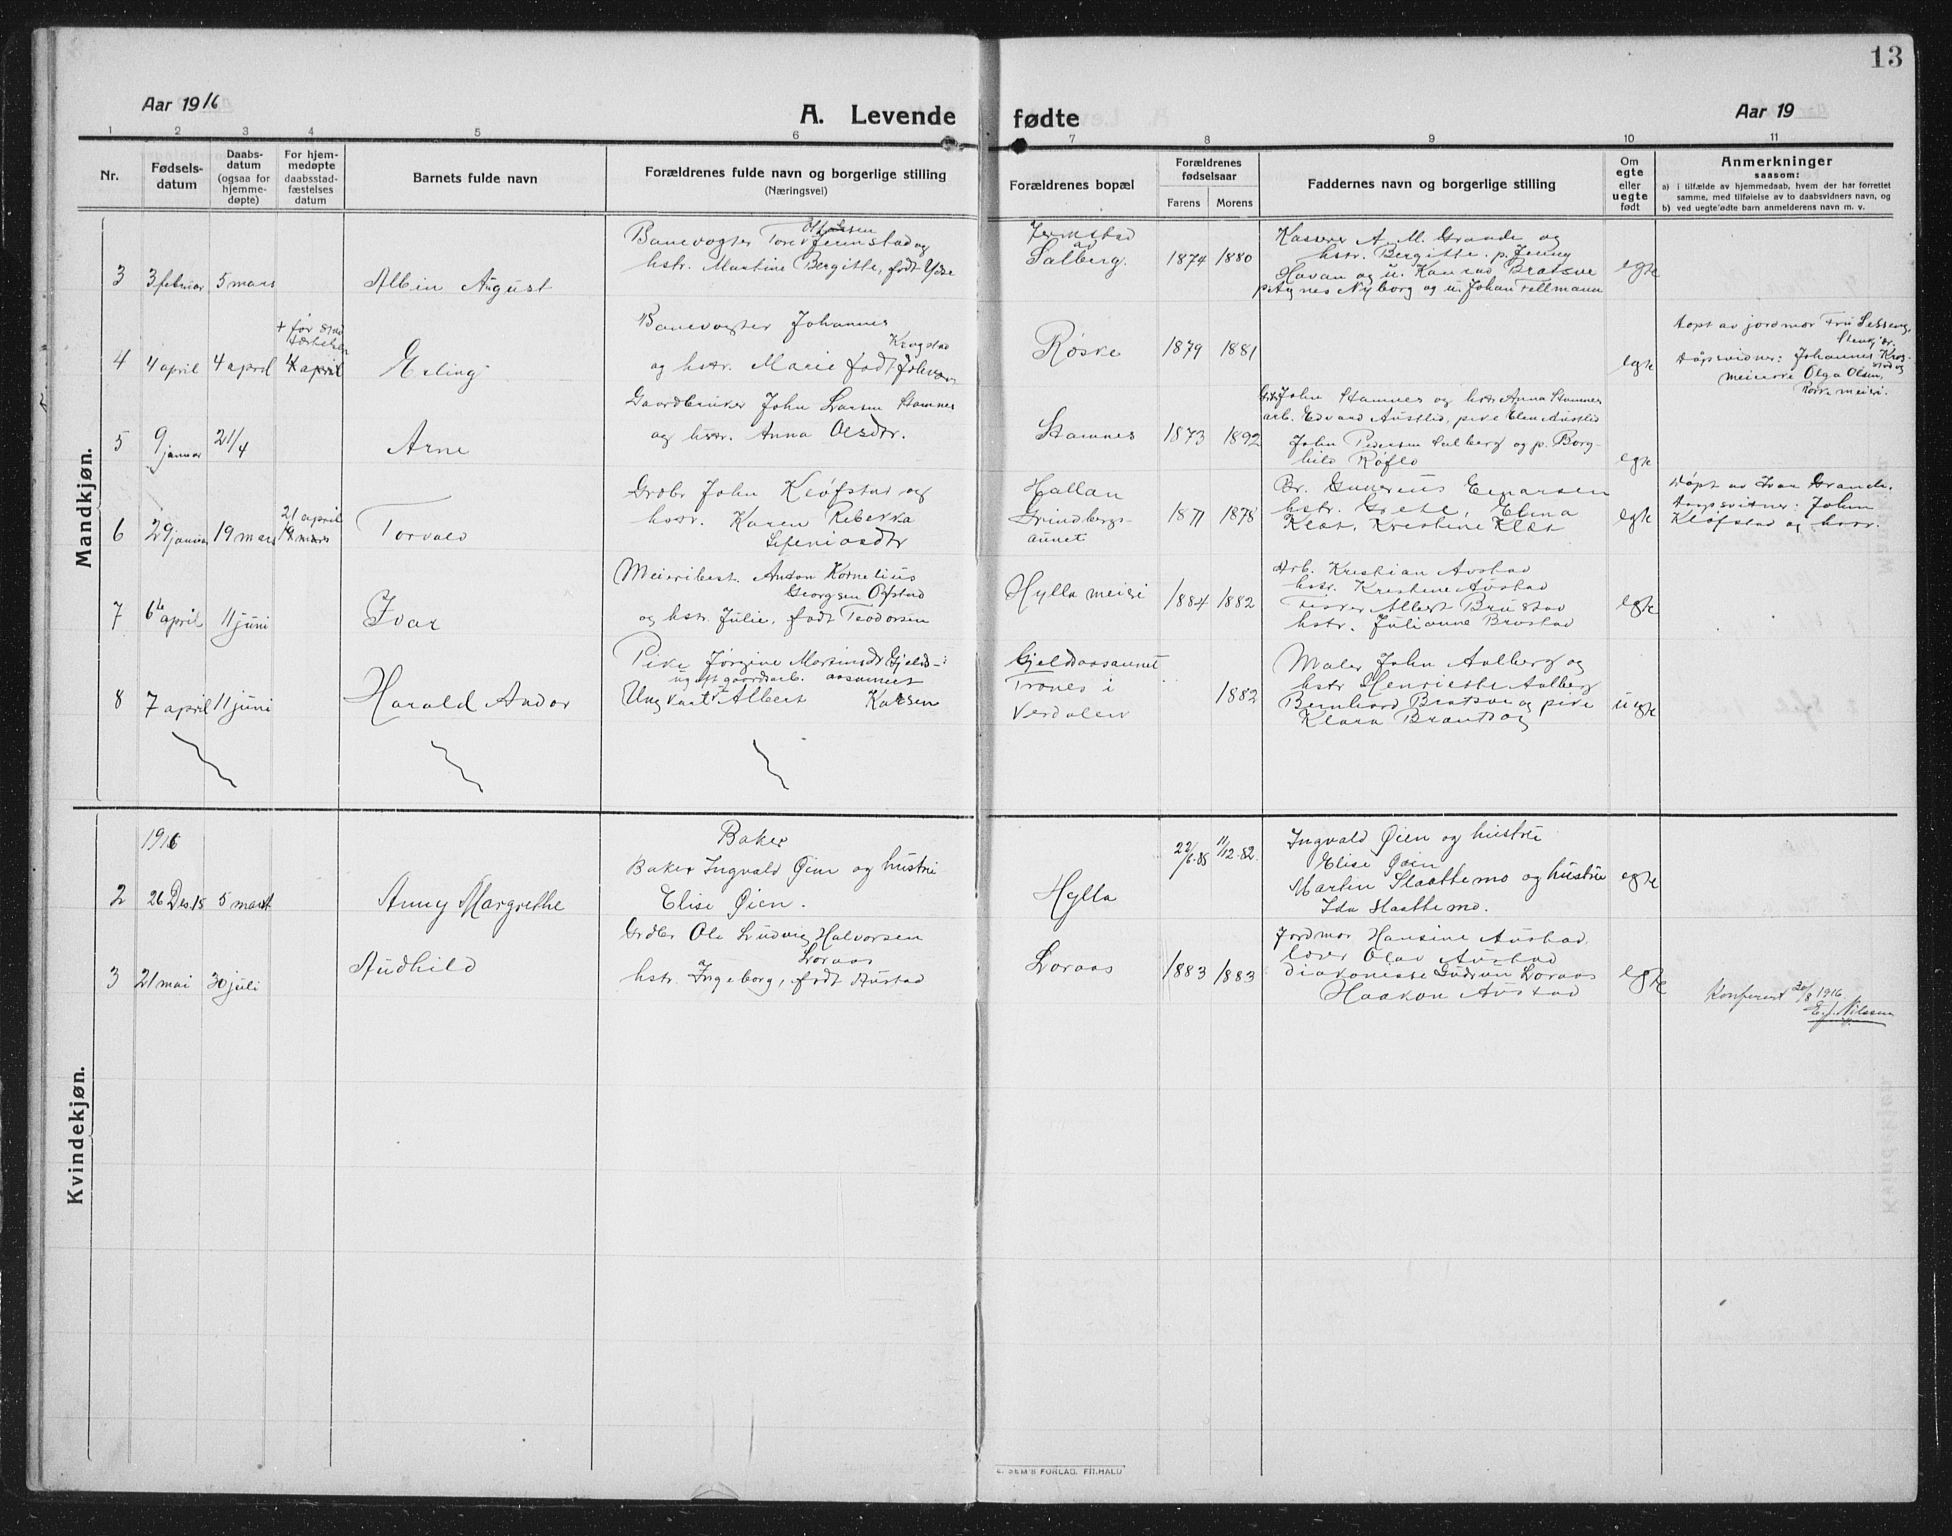 13
Aar 1916
A. Levende fødte
Aar 19
1 2 3 4 5 6 7 8 9 10 11
Nr.
Fødsels-
datum
Daabs-
datum
(ogsaa for
hjemme-
døpte)
For hjem-
medøpte
daabsstad-
fæstelses
datum
Barnets fulde navn
Forældrenes fulde navn og borgerlige stilling
(Næringsvei)
Forældrenes bopæl
Forældrenes
fødselsaar
Farens Morens
Faddernes navn og borgerlige stilling
Om
egte
eller
uegte
født
Anmerkninger
saasom:
a) i tilfælde av hjemmedaab, hvem der har forrettet
samme, med tilføielse av to daabsvidners navn, og
b) ved uegte fødte barn anmelderens navn m. v.
Mandkjøn.
3 3 februar 5 mars
Albin August
Banevogter Tore Jermstad og
hstr. Martine Bergitte, født Ydse
Jermstad
av
Salberg.
1874 1880
Kasserer A. M. Grande og
hstr. Bergitte. p. Jenny
Havan og u. Konrad Bratsve
p. Agnes Nyborg og u. Johan Fellmann
egte
4 4 april 4 april
+ før stad
fæstelsen
4 april
Erling
Banevogter Johannes
Krogstad
og hstr. Marie født Johnsen
Røske
1879 1881
egte
Døpt av jordmor Fru Selseng,
Stenkjær.
Daapsvidner: Johannes Krog-
stad og
meierske Olga Olsen,
Røske meieri.
5 9 januar 21/4
Arne
Gaardbruker John Larsen Stamnes
og hstr. Anna Olsdtr.
Stamnes
1873 1892
Gbr. John Stamnes og hstr Anna Stamnes
arb. Edvard Austlid, pike Elen Austlid
John Pedersen Salberg og p. Borg-
hild Røflo
egte
6 29 januar 19 mars
21 april
19 mars
Torvald
Grdbr John Kløfstad og
hstr. Karen Rebekka
Sefeniasdtr
Hallan
Grindbergs-
aunet
1871 1878
Br. Gunerius Einarsen
hstr. Grete, Elma
Klæt, Kristine Klæt
egte
Døpt av Ivar Grande.
Daapsvitner: John
Kløfstad og hstr.
7 6te april 11 juni
Ivar
Meieribest. Anton Kornelius
Georgsen Ofstad
og hstr. Julie, født Teodorsen
Hylla meieri
1884 1882
Arb. Kristian Austad
hstr. Kristine Austad
Fisker Albert Brustad
hstr. Julianne Brustad
egte
8 7 april 11 juni
Harald Andor
Pike Jørgine Martinsdtr Gjelds-
ugift gaardsarb. aasaunet
Ungkar Albert Karlsen
Gjeldsaasaunet
Trones i
Verdalen
1882
Maler John Aalberg og
hstr Henriette Aalberg
Bernhard Bratsve og pike
Klara Brandtzæg
uegte
Kvindekjøn.
1916
2 26 Des. 15 5 mars
Anny Margrethe
Baker
Baker Ingvald Øien og hustru
Elise Øien.
Hylla
22/6-85 11/12-82.
Ingvald Øien og hustru
Elise Øien
Martin Slaattemo og hustru
Ida Slaattemo.
egte
3 21 mai 30 juli
Audhild
Grdbr Ole Ludvig Halvorsen
Loraas
hstr. Ingeborg, født Austad
Loraas
1883 1883
Jordmor Hansine Austad
lærer Olav Austad
diakonisse Gudrun Loraas
Haakon Austad
egte
Konferert 30/8 1916.
E. J. Nilssen
E. SEM'S FORLAG, FR.HALD